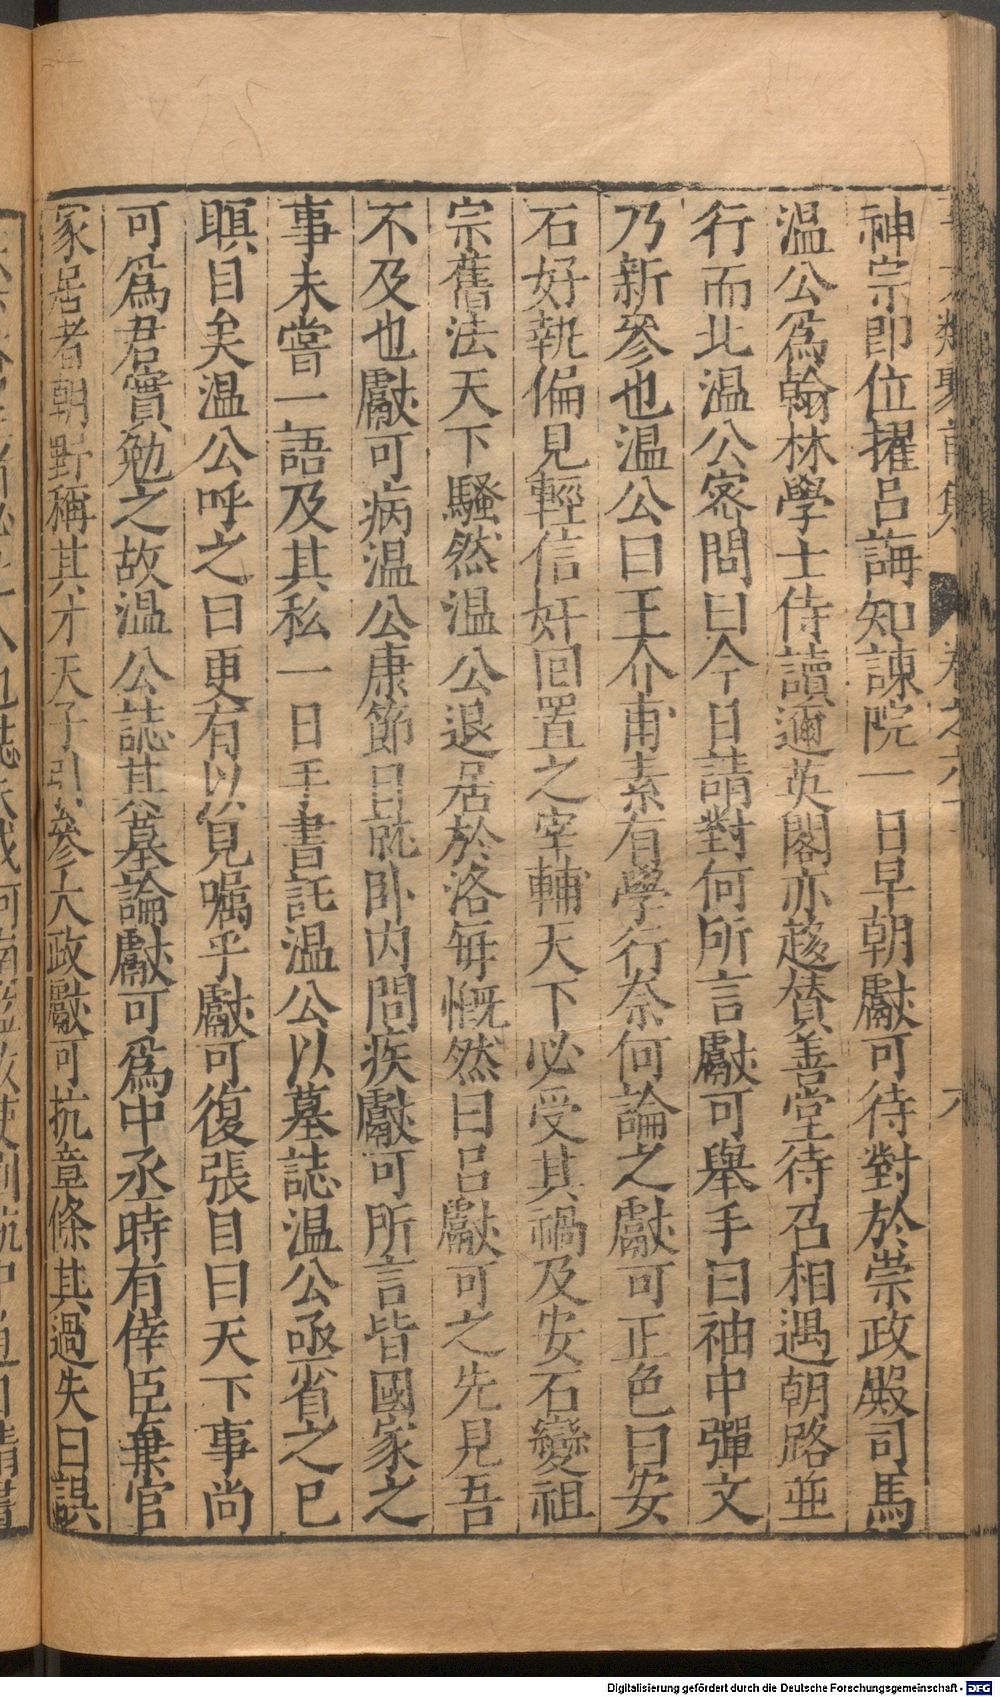 神宗即位擢呂誨知諫院一日早朝獻可待對於崇政殿司馬
温公爲翰林學士侍讀邇英閣亦趍賛善堂待召相遇朝路並
行而北温公密問曰今日請對何所言獻可舉手曰袖中彈文
乃新參也温公曰王介甫素有學行柰何論之獻可正色曰安
石好執偏見輕信奸回置之宰輔天下必受其禍及安石變祖
宗舊法天下騷然温公退居於洛每慨然曰呂獻可之先見吾
不及也獻可病温公康節日就卧内問疾獻可所言皆國家之
事未嘗一語及其私一日手書託温公以墓誌温公亟省之已
瞑目矣温公呼之曰更有以見囑乎獻可復張目曰天下事尚
可爲君實勉之故温公誌其墓論獻可爲中丞時有倖臣棄官
家居者朝野稱其才天子引參大政獻可抗章條其過失曰誤
Digitalisierung gefördert durch die Deutsche Forschungsgemeinschaft - DFG